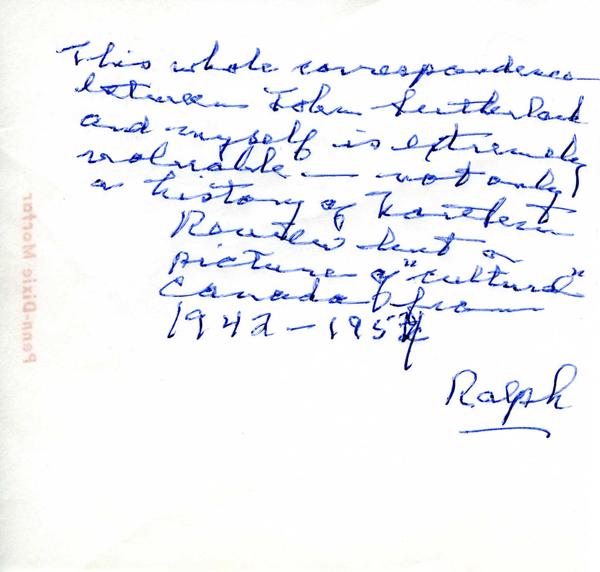 This whole correspondence
between John Sutherland
and myself is extremely
valuable — not only
a history of Northern
Review but a
picture of "cultural"
Canada from
1942 - 195
Ralph
Penn-Dixie Mortar